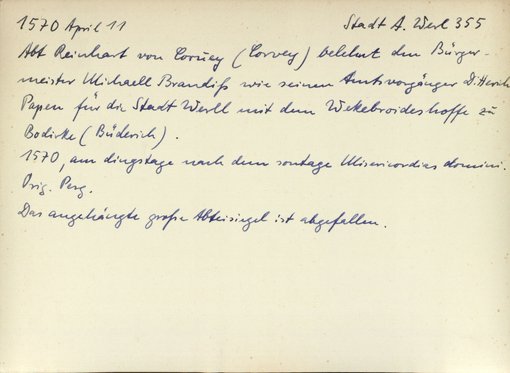 1570 April 11 Stadt A. Werl 355
Abt Reinhart von Corvey (Corvey) belehnt den Bürger-
meister Michaell Brandiß wie seinen Amtsvorgänger D. Henrich
Papen für die Stadt Werll mit dem Wekebroideshoffe zu
Bodirke (Büderich).
1570, am dingstage nach dem sontage Misericordias domini.
Orig. Perg.
Das angehängte große Abteisiegel ist abgefallen.